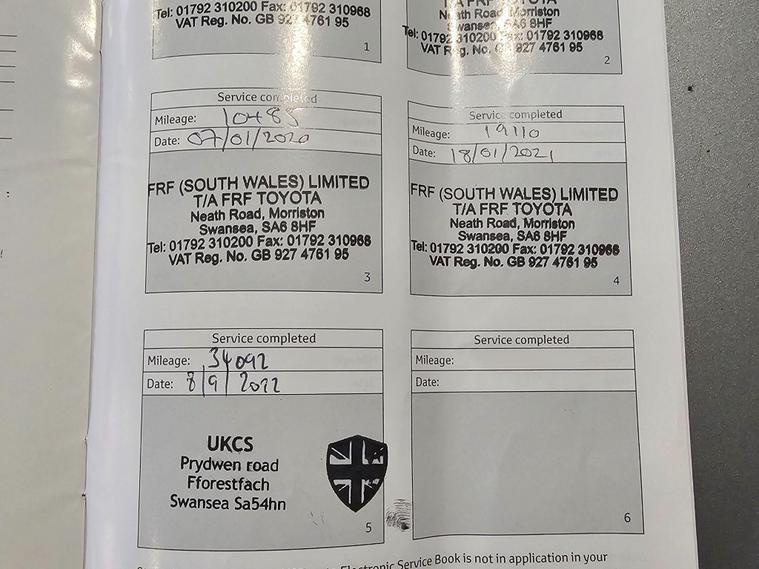 Tel: 01792 310200 Fax: 01792 310968
VAT Reg. No. GB 927 4761 95
1
T/A FRF
Neath Road, Morriston
Swansea, SA6 8HF
Tel: 01792 310200 Fax: 01792 310968
VAT Reg. No. GB 927 4761 95
2
Service completed
Mileage: 10485
Date: 07/01/2020
FRF (SOUTH WALES) LIMITED
T/A FRF TOYOTA
Neath Road, Morriston
Swansea, SA6 8HF
Tel: 01792 310200 Fax: 01792 310968
VAT Reg. No. GB 927 4761 95
3
Service completed
Mileage: 19110
Date: 18/01/2021
FRF (SOUTH WALES) LIMITED
T/A FRF TOYOTA
Neath Road, Morriston
Swansea, SA6 8HF
Tel: 01792 310200 Fax: 01792 310968
VAT Reg. No. GB 927 4761 95
4
Service completed
Mileage: 34092
Date: 8/9/2022
UKCS
Prydwen road
Fforestfach
Swansea Sa54hn
5
Service completed
Mileage:
Date:
6
Electronic Service Book is not in application in your